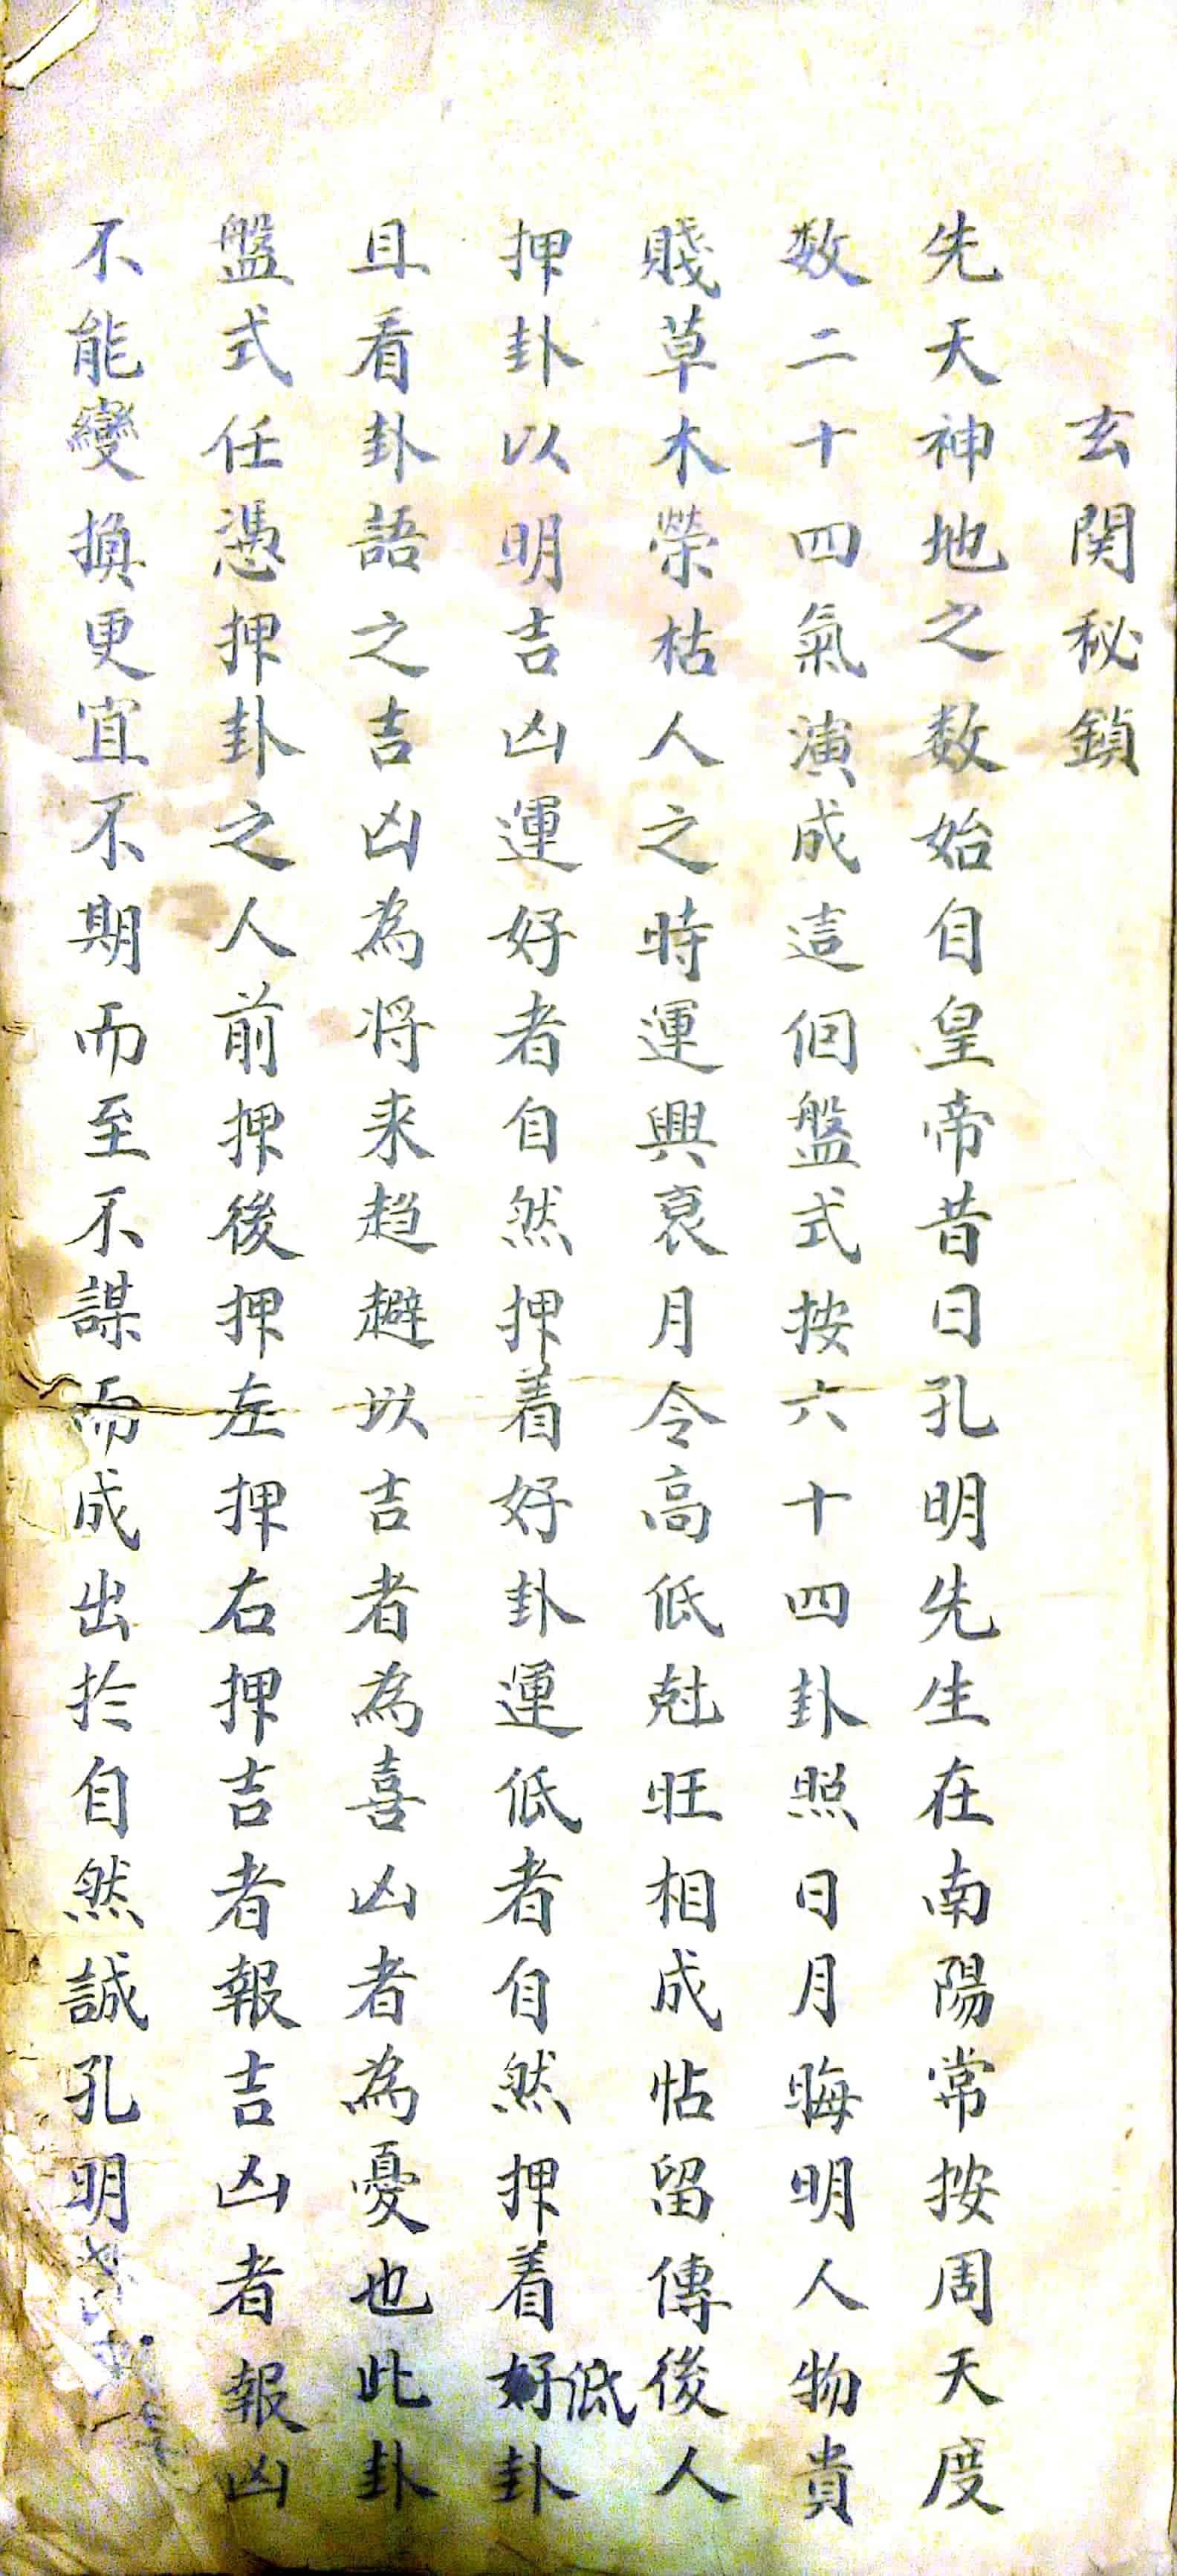 玄関秘鎖
先天神地之数始自皇帝昔日孔明先生在南陽常按周天度
数二十四氣演成這個盤式按六十四卦照日月晦明人物貴
賤草木榮枯人之時運興衰月令高低尅旺相成帖留傳後人
押卦以明吉凶運好者自然押着好卦運低者自然押着好低卦
且看卦語之吉凶為将来趋避以吉者為喜凶者為憂也此卦
盤式任憑押卦之人前押後押左押右押吉者報吉凶者報凶
不能變換更宜不期而至不謀而成出於自然誠孔明